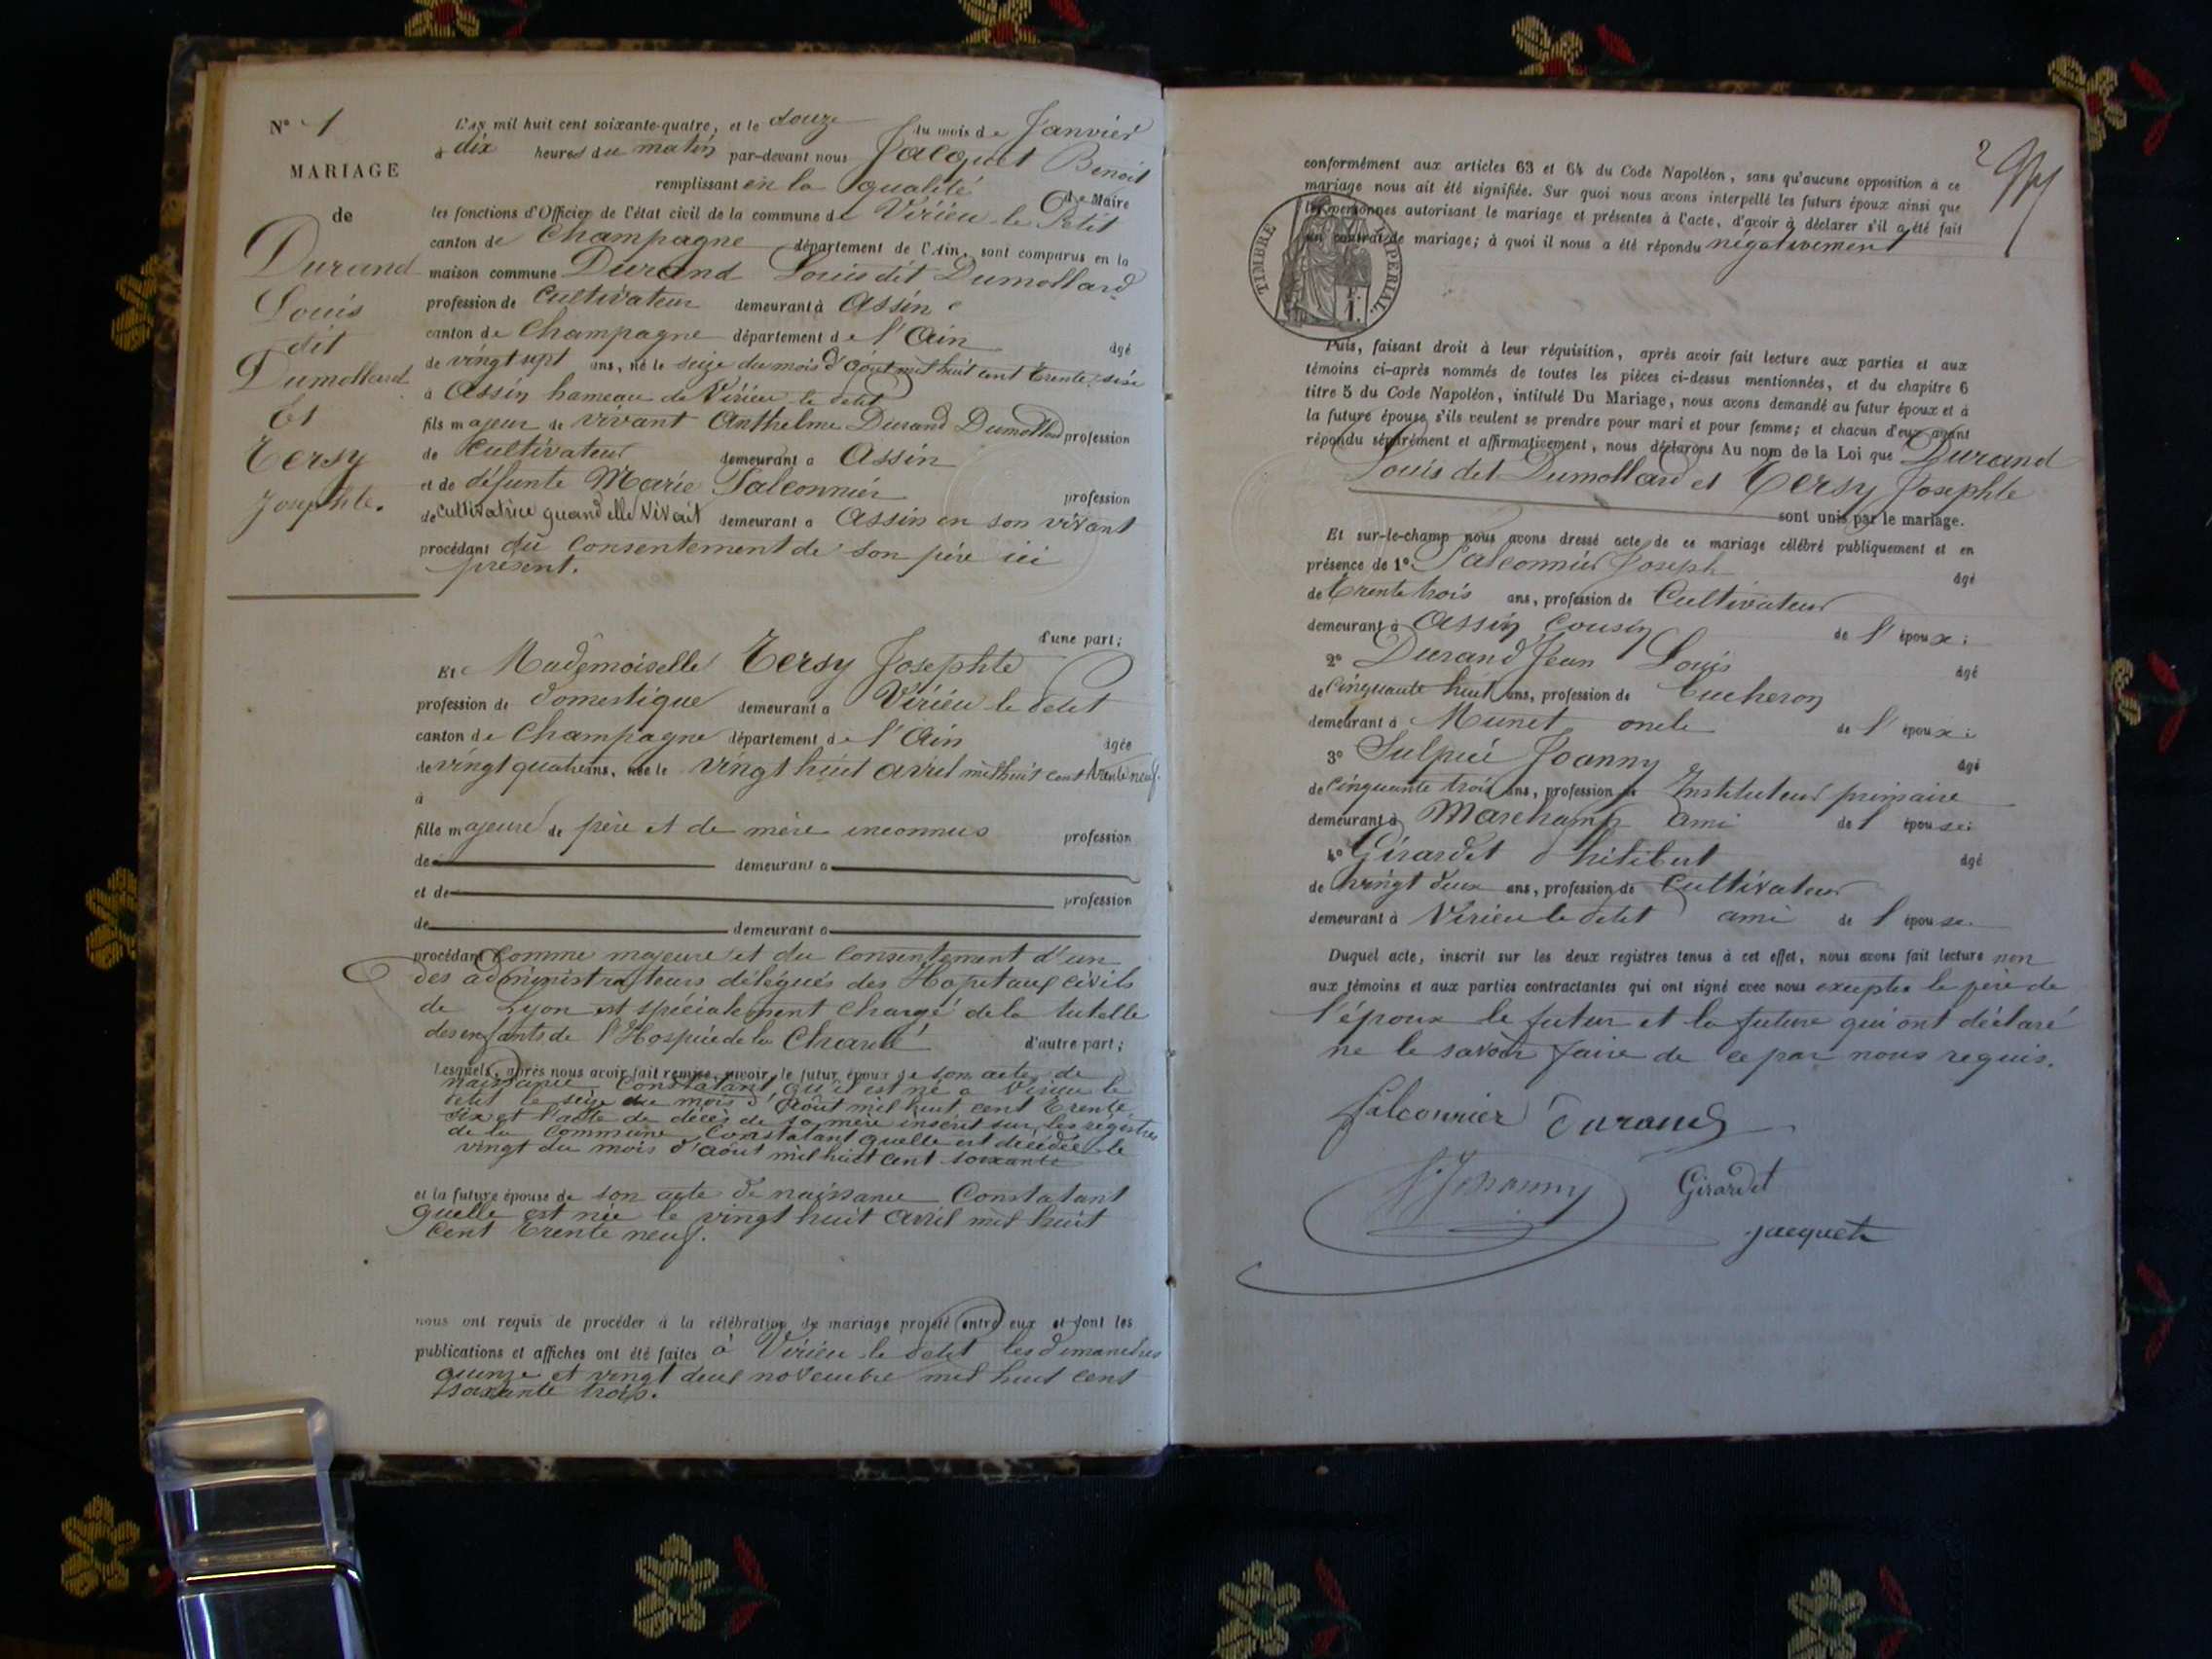 N° 1
MARIAGE
de
Durand
Louis
dit
Dumollard
Et
Tersy
Josephte.
L'an mil huit cent soixante-quatre, et le douze du mois de Janvier
à dix heures du matin par-devant nous Jacquet Benoit
remplissant en la qualité de Maire
les fonctions d'Officier de l'état civil de la commune de Virieu le Petit
canton de Champagne département de l'Ain, sont comparus en la
maison commune Durand Louis dit Dumollard
profession de Cultivateur demeurant à Assin
canton de Champagne département de l'Ain âgé
de vingt sept ans, né le seize du mois d'août mil huit cent trente six
à Assin hameau de Virieu le Petit
fils majeur de vivant Anthelme Durand Dumollard profession
de Cultivateur demeurant à Assin
et de défunte Marie Falconnier profession
de Cultivatrice quand elle vivait demeurant à Assin en son vivant
procédant du Consentement de son père ici
présent.
d'une part;
Et Mademoiselle Tersy Josephte
profession de domestique demeurant à Virieu le Petit
canton de Champagne département de l'Ain âgée
de vingt quatre ans, née le vingt huit avril mil huit cent trente neuf.
à
fille majeure de père et de mère inconnus profession
de demeurant à
et de profession
de demeurant à
procédant comme majeure et du Consentement d'un
des administrateurs délégués des Hopitaux civils
de Lyon et spécialement chargé de la tutelle
des enfants de l'Hospice de la Charité d'autre part;
Lesquels, après nous avoir fait remise, savoir, le futur époux de son acte de
naissance Constatant qu'il est né à Virieu le
Petit le seize du mois d'Août mil huit cent trente
six et l'acte de décès de sa mère inscrit sur les régistres
de la Commune Constatant quelle est décédée le
vingt du mois d'août mil huit cent soixante
et la future épouse de son acte de naissance Constatant
quelle est née le vingt huit avril mil huit
cent trente neuf.
nous ont requis de procéder à la célébration du mariage projeté entre eux et dont les
publications et affiches ont été faites à Virieu le Petit les dimanches
quinze et vingt deux novembre mil huit cent
soixante trois.
2
conformément aux articles 63 et 64 du Code Napoléon, sans qu'aucune opposition à ce
mariage nous ait été signifiée. Sur quoi nous avons interpellé les futurs époux ainsi que
les personnes autorisant le mariage et présentes à l'acte, d'avoir à déclarer s'il a été fait
un contrat de mariage; à quoi il nous a été répondu négativement
TIMBRE IMPERIAL.
Puis, faisant droit à leur réquisition, après avoir fait lecture aux parties et aux
témoins ci-après nommés de toutes les pièces ci-dessus mentionnées, et du chapitre 6
titre 5 du Code Napoléon, intitulé Du Mariage, nous avons demandé au futur époux et à
la future épouse s'ils veulent se prendre pour mari et pour femme; et chacun d'eux ayant
répondu séparément et affirmativement, nous déclarons Au nom de la Loi que Durand
Louis dit Dumollard et Tersy Josephte
sont unis par le mariage.
Et sur-le-champ nous avons dressé acte de ce mariage célébré publiquement et en
présence de 1° Falconnier Joseph âgé
de trente trois ans, profession de Cultivateur
demeurant à Assin Cousin de l'époux;
2° Durand Jean Louis âgé
de cinquante huit ans, profession de bucheron
demeurant à Munet oncle de l'époux;
3° Sulpice Joanny âgé
de cinquante trois ans, profession de Instituteur primaire
demeurant à Marchamp ami de l'épouse;
4° Girardet Philibert âgé
de vingt deux ans, profession de Cultivateur
demeurant à Virieu le Petit ami de l'épouse
Duquel acte, inscrit sur les deux registres tenus à cet effet, nous avons fait lecture non
aux témoins et aux parties contractantes qui ont signé avec nous exceptés le père de
l'époux le futur et la future qui ont déclaré
ne le savoir faire de ce par nous requis.
Falconnier Durand
S. Joanny Girardet
Jacquet